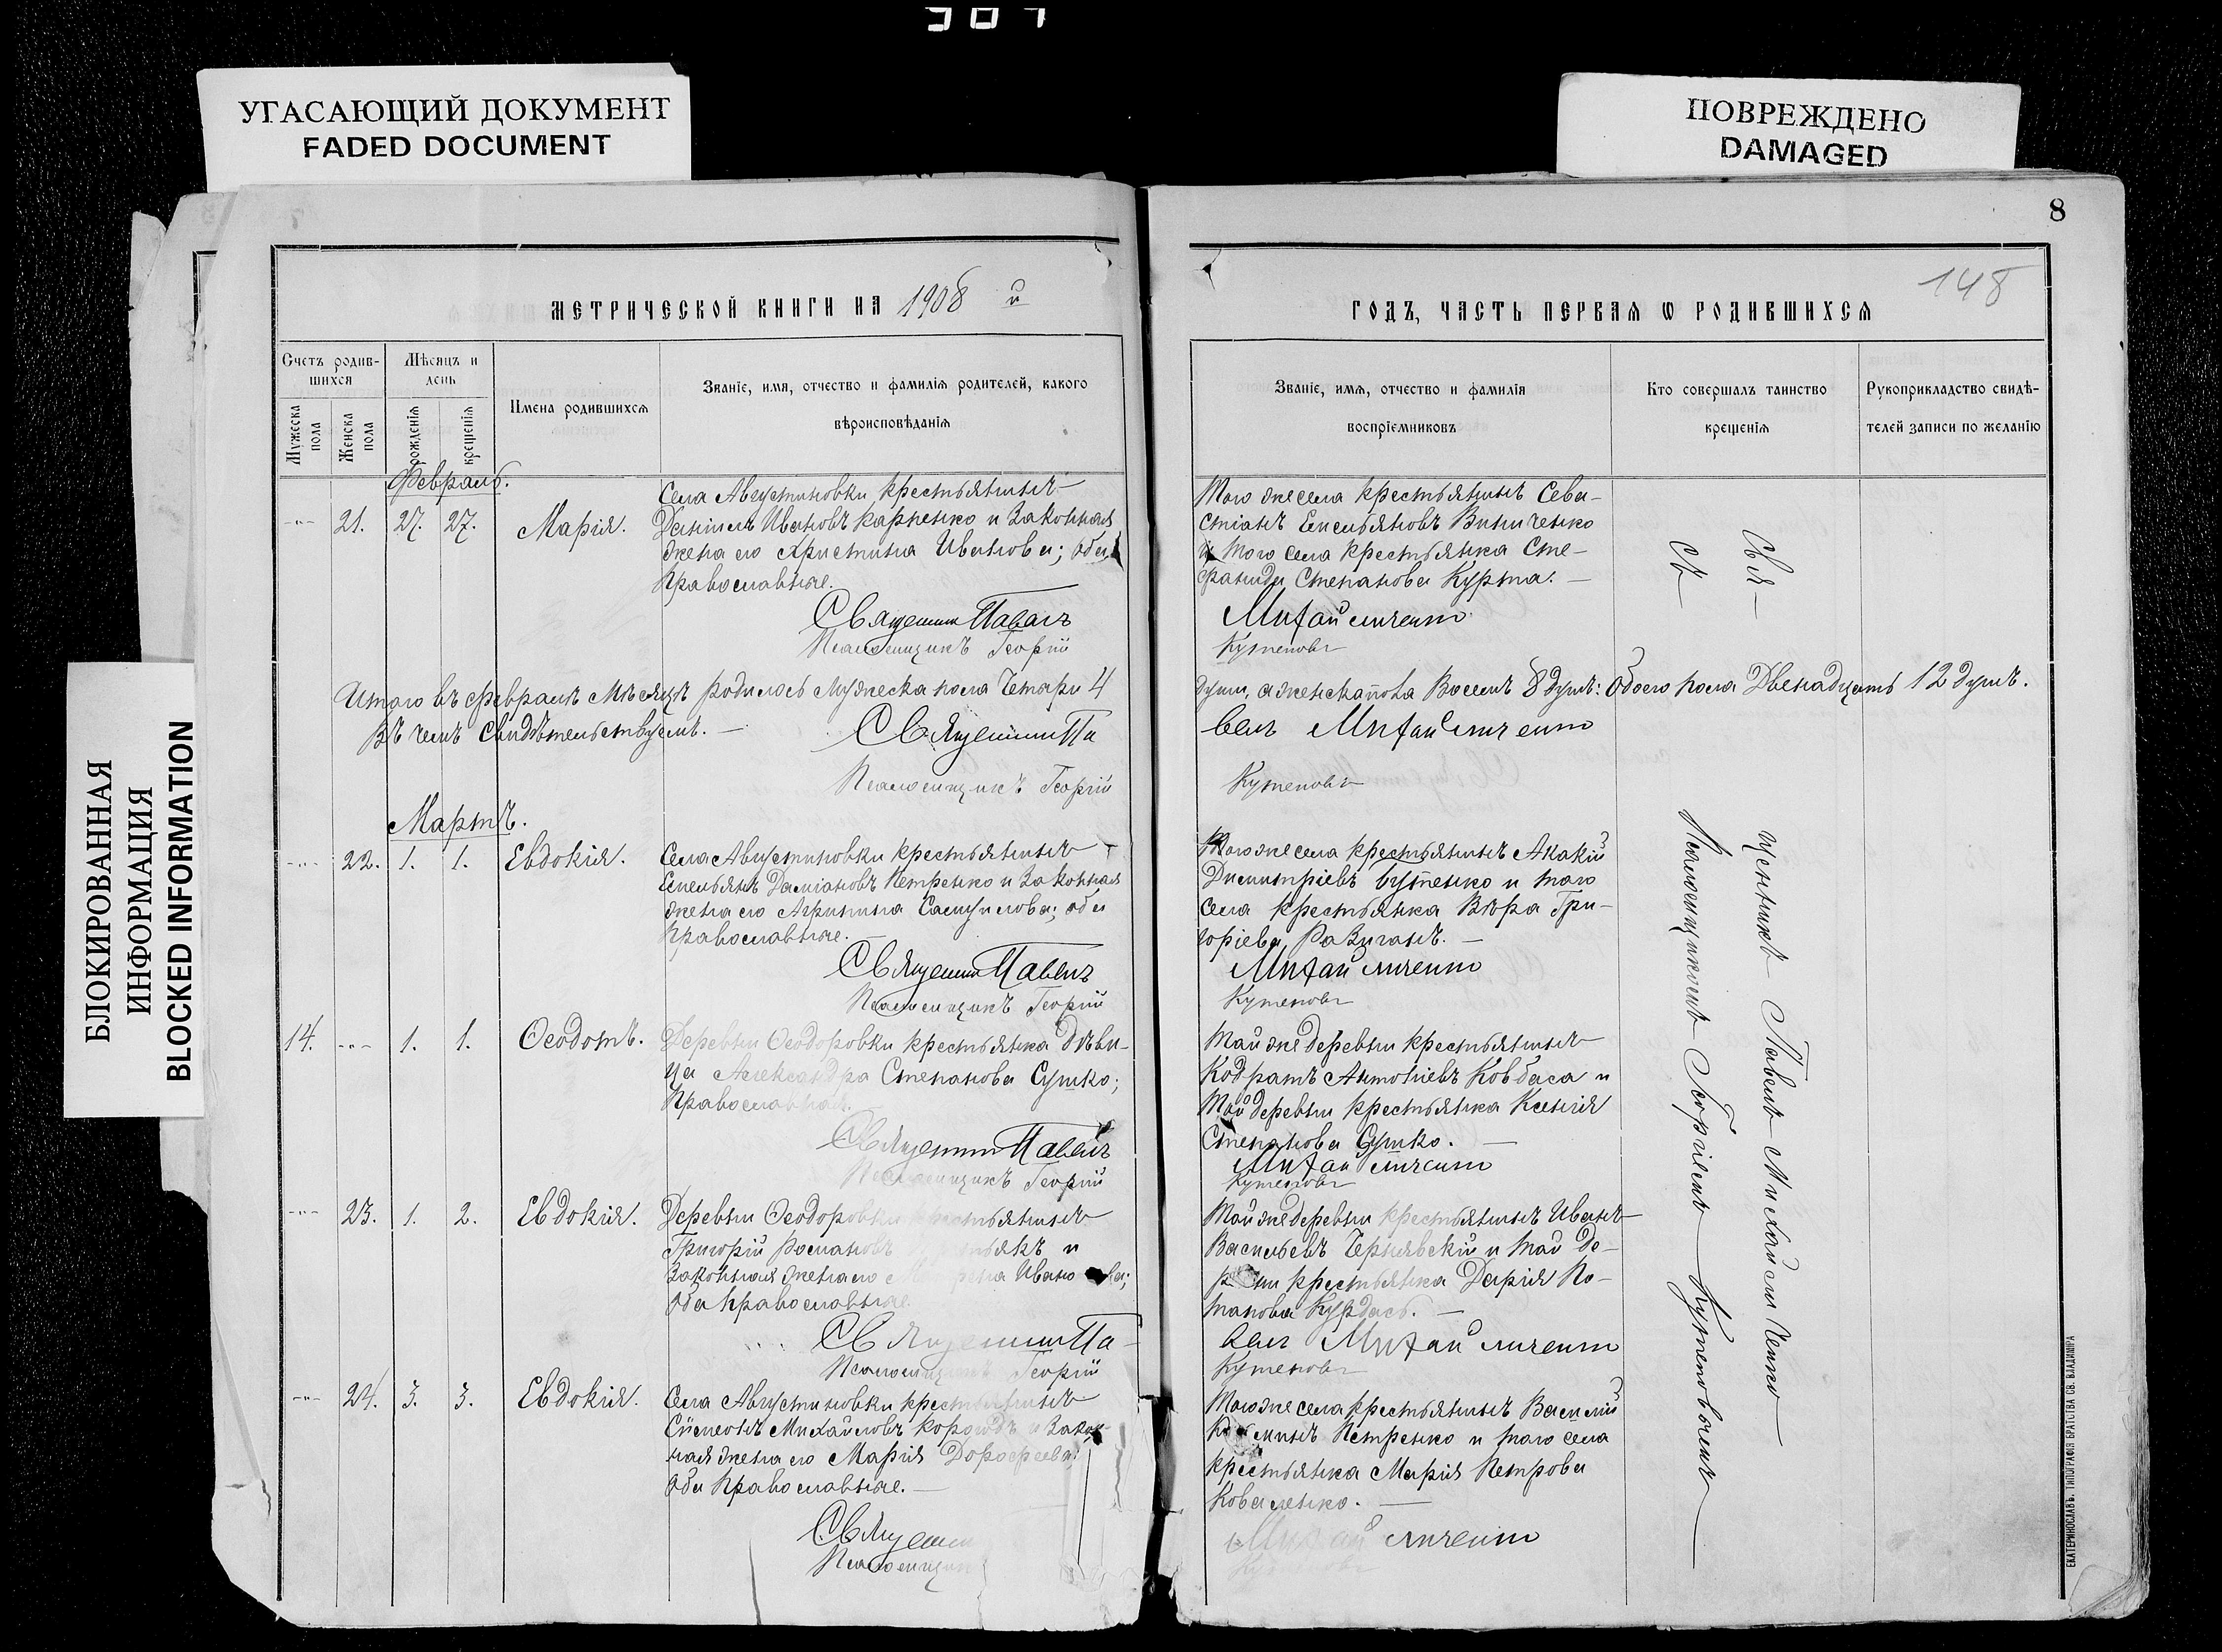 307
УГАСАЮЩИЙ ДОКУМЕНТ
FADED DOCUMENT
ПОВРЕЖДЕНО
DAMAGED
БЛОКИРОВАННАЯ
ИНФОРМАЦИЯ
BLOCKED INFORMATION
МЕТРИЧЕСКОЙ КНИГИ НА 1908 й
Счетъ родив-
шихся
Мѣсяцъ и
день
Мужеска
пола
Женска
пола
рожденія
крещенія
Имена родившихся
Званіе, имя, отчество и фамилія родителей, какого
вѣроисповѣданія
Февраль.
21. 27. 27. Марія.
Села Августиновки крестьянинъ
Даніилъ Ивановъ Карпенко и законная
жена его Христина Иванова; оба
православные.
Священник Павелъ
Псаломщикъ Георгій
Итого въ Февралѣ мѣсяцѣ родилось мужеска пола Четыри 4
Въ чемъ свидѣтельствуемъ.
Священник Па
Псаломщикъ Георгій
Мартъ.
22. 1. 1. Евдокія.
Села Августиновки крестьянинъ
Емельянъ Даміановъ Петренко и законная
жена его Агрипина Самуилова; оба
православные.
Священник Павелъ
Псаломщикъ Георгій
14. 1. 1. Ѳеодотъ.
Деревни Ѳеодоровки крестьянка дѣви-
ца Александра Степанова Сушко;
Православная.
Священник Павелъ
Псаломщикъ Георгій
23. 1. 2. Евдокія.
Деревни Ѳеодоровки крестьянинъ
Григорій Романовъ и
законная жена его Иванова;
Оба православные.
Священник Па
Псаломщикъ Георгій
24. 3. 3. Евдокія.
Села Августиновки крестьянинъ
Симеонъ Михайловъ и закон-
ная жена его Марія Дорофеева;
Оба православные.
Священ
Псаломщик
8
148
ГОДЪ, ЧАСТЬ ПЕРВАЯ Ѡ РОДИВШИХСЯ
Званіе, имя, отчество и фамилія
воспріемниковъ
Кто совершалъ таинство
крещенія
Рукоприкладство свидѣ-
телей записи по желанію
Того же села крестьянинъ Сева-
стіанъ Емельяновъ Винниченко
и того села крестьянка Сте-
фанида Степанова Курта.
Михайличенко
Кутеповъ
душ, а женска пола Восемь 8 душъ: Обоего пола Двенадцать 12 душъ.
велъ Михайличенко
Кутеповъ
Того же села крестьянинъ Акакій
Димитріевъ Бутенко и того
села крестьянка Вѣра Гри-
горіева
Михайличенко
Кутеповъ
Той же деревни крестьянинъ
Кодратъ Антоніевъ Ковбаса и
той деревни крестьянка Ксенія
Степанова Сушко.
Михайличенко
Кутеповъ
Той же деревни крестьянинъ Иванъ
Васильевъ Чернявскій и той де-
ревни крестьянка Дарія По-
тапова Курдась.
велъ Михайличенко
Кутеповъ
Того же села крестьянинъ Василій
Петренко и того села
крестьянка Марія Петрова
Коваленко.
Михайличенко
Свя-
щенникъ Павелъ Михайличенко
Съ
Псаломщикомъ Георгіемъ Кутеповымъ
ЕКАТЕРИНОСЛАВЪ. ТИПОГРАФІЯ БРАТСТВА СВ. ВЛАДИМІРА